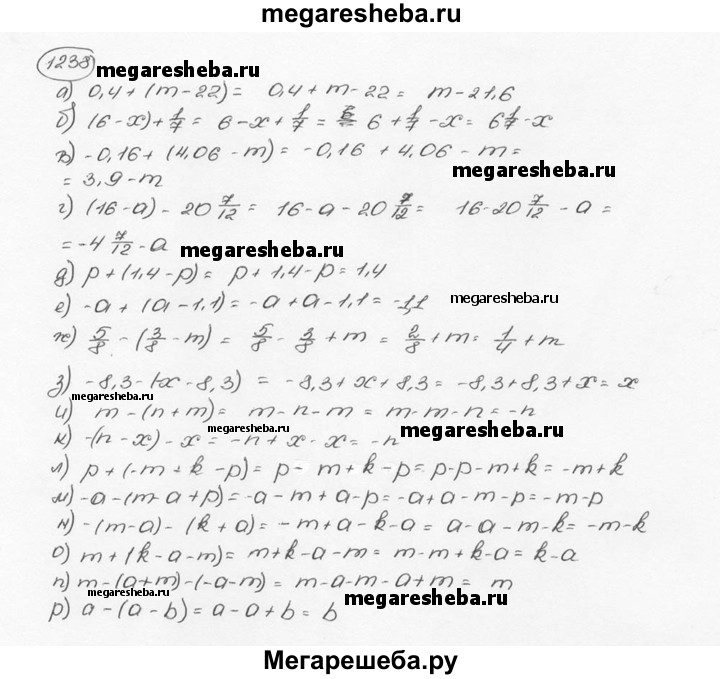 megaresheba.ru
1238 megaresheba.ru
а) 0,4 + (m - 22) = 0,4 + m - 22 = m - 21,6
б) (6 - x) + 1/7 = 6 - x + 1/7 = 6 + 1/7 - x = 6 1/7 - x
в) -0,16 + (4,06 - m) = -0,16 + 4,06 - m =
= 3,9 - m
megaresheba.ru
г) (16 - a) - 20 7/12 = 16 - a - 20 7/12 = 16 - 20 7/12 - a =
= -4 7/12 - a megaresheba.ru
д) p + (1,4 - p) = p + 1,4 - p = 1,4
е) -a + (a - 1,1) = -a + a - 1,1 = -1,1 megaresheba.ru
ж) 5/8 - (3/8 - m) = 5/8 - 3/8 + m = 2/8 + m = 1/4 + m
з) -8,3 - (-x - 8,3) = -8,3 + x + 8,3 = -8,3 + 8,3 + x = x
megaresheba.ru
и) m - (n + m) = m - n - m = m - m - n = -n
к) -(n - x) - x = -n + x - x = -n megaresheba.ru
л) p + (-m + k - p) = p - m + k - p = p - p - m + k = -m + k
м) -a - (m - a + p) = -a - m + a - p = -a + a - m - p = -m - p
н) -(m - a) - (k + a) = -m + a - k - a = a - a - m - k = -m - k
о) m + (k - a - m) = m + k - a - m = m - m + k - a = k - a
п) m - (a + m) - (-a - m) = m - a - m - a + m = m
megaresheba.ru
р) a - (a - b) = a - a + b = b megaresheba.ru
Мегарешеба.ру